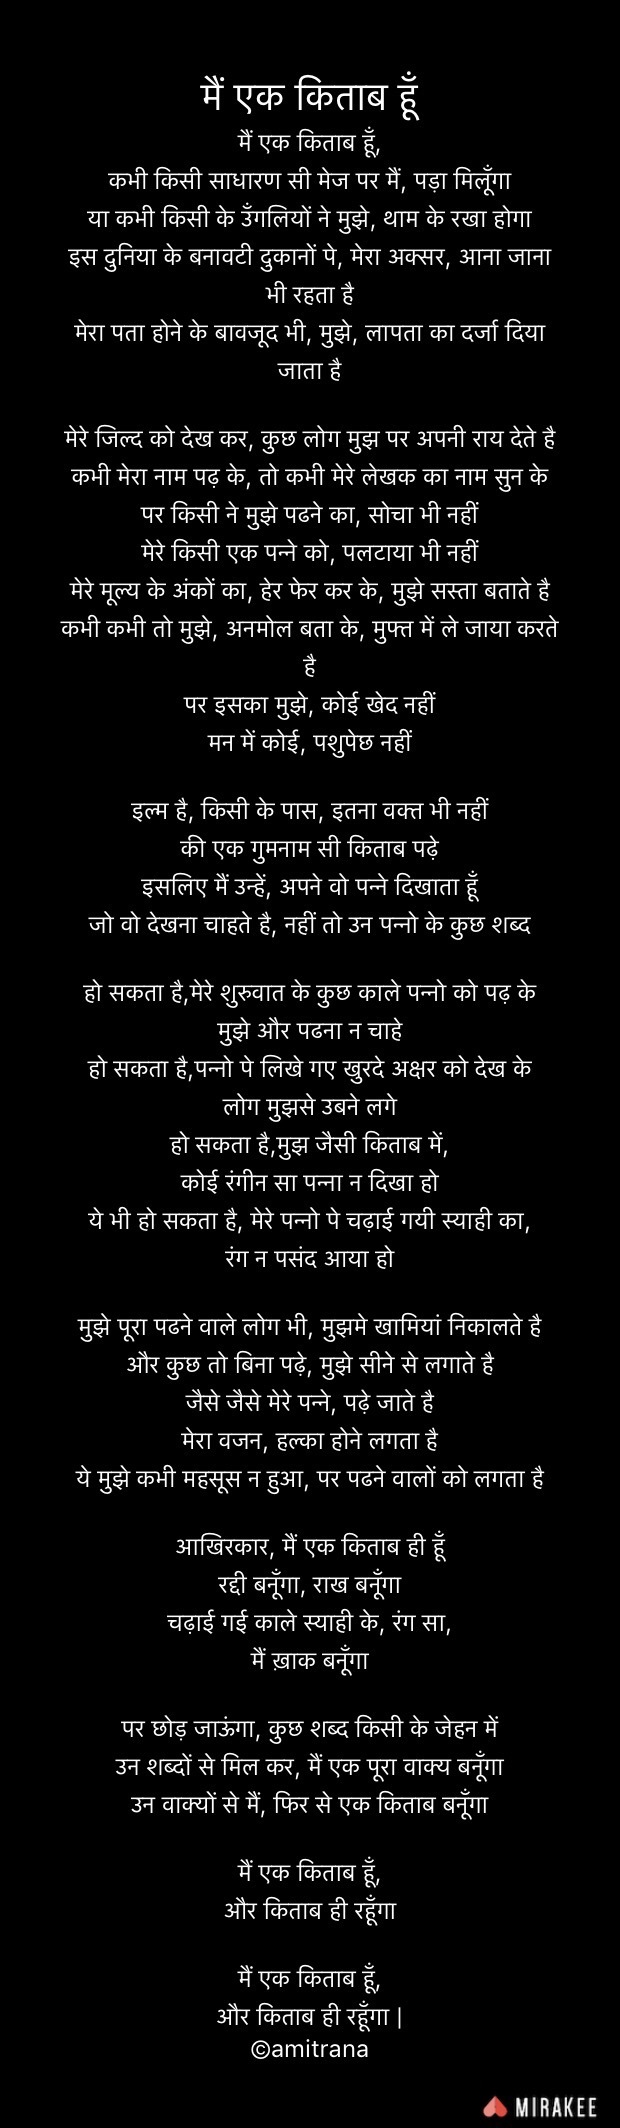 मैं एक किताब हूँ
मैं एक किताब हूँ,
कभी किसी साधारण सी मेज पर मैं, पड़ा मिलूँगा
या कभी किसी के उँगलियों ने मुझे, थाम के रखा होगा
इस दुनिया के बनावटी दुकानों पे, मेरा अक्सर, आना जाना
भी रहता है
मेरा पता होने के बावजूद भी, मुझे, लापता का दर्जा दिया
जाता है
मेरे जिल्द को देख कर, कुछ लोग मुझ पर अपनी राय देते है
कभी मेरा नाम पढ़ के, तो कभी मेरे लेखक का नाम सुन के
पर किसी ने मुझे पढने का, सोचा भी नहीं
मेरे किसी एक पन्ने को, पलटाया भी नहीं
मेरे मूल्य के अंकों का, हेर फेर कर के, मुझे सस्ता बताते है
कभी कभी तो मुझे, अनमोल बता के, मुफ्त में ले जाया करते
है
पर इसका मुझे, कोई खेद नहीं
मन में कोई, पशुपेछ नहीं
इल्म है, किसी के पास, इतना वक्त भी नहीं
की एक गुमनाम सी किताब पढ़े
इसलिए मैं उन्हें, अपने वो पन्ने दिखाता हूँ
जो वो देखना चाहते है, नहीं तो उन पन्नो के कुछ शब्द
हो सकता है,मेरे शुरुवात के कुछ काले पन्नो को पढ़ के
मुझे और पढना न चाहे
हो सकता है,पन्नो पे लिखे गए खुरदे अक्षर को देख के
लोग मुझसे उबने लगे
हो सकता है,मुझ जैसी किताब में,
कोई रंगीन सा पन्ना न दिखा हो
ये भी हो सकता है, मेरे पन्नो पे चढ़ाई गयी स्याही का,
रंग न पसंद आया हो
मुझे पूरा पढने वाले लोग भी, मुझमे खामियां निकालते है
और कुछ तो बिना पढ़े, मुझे सीने से लगाते है
जैसे जैसे मेरे पन्ने, पढ़े जाते है
मेरा वजन, हल्का होने लगता है
ये मुझे कभी महसूस न हुआ, पर पढने वालों को लगता है
आखिरकार, मैं एक किताब ही हूँ
रद्दी बनूँगा, राख बनूँगा
चढ़ाई गई काले स्याही के, रंग सा,
मैं ख़ाक बनूँगा
पर छोड़ जाऊंगा, कुछ शब्द किसी के जेहन में
उन शब्दों से मिल कर, मैं एक पूरा वाक्य बनूँगा
उन वाक्यों से मैं, फिर से एक किताब बनूँगा
मैं एक किताब हूँ,
और किताब ही रहूँगा
मैं एक किताब हूँ,
और किताब ही रहूँगा |
©amitrana
MIRAKEE